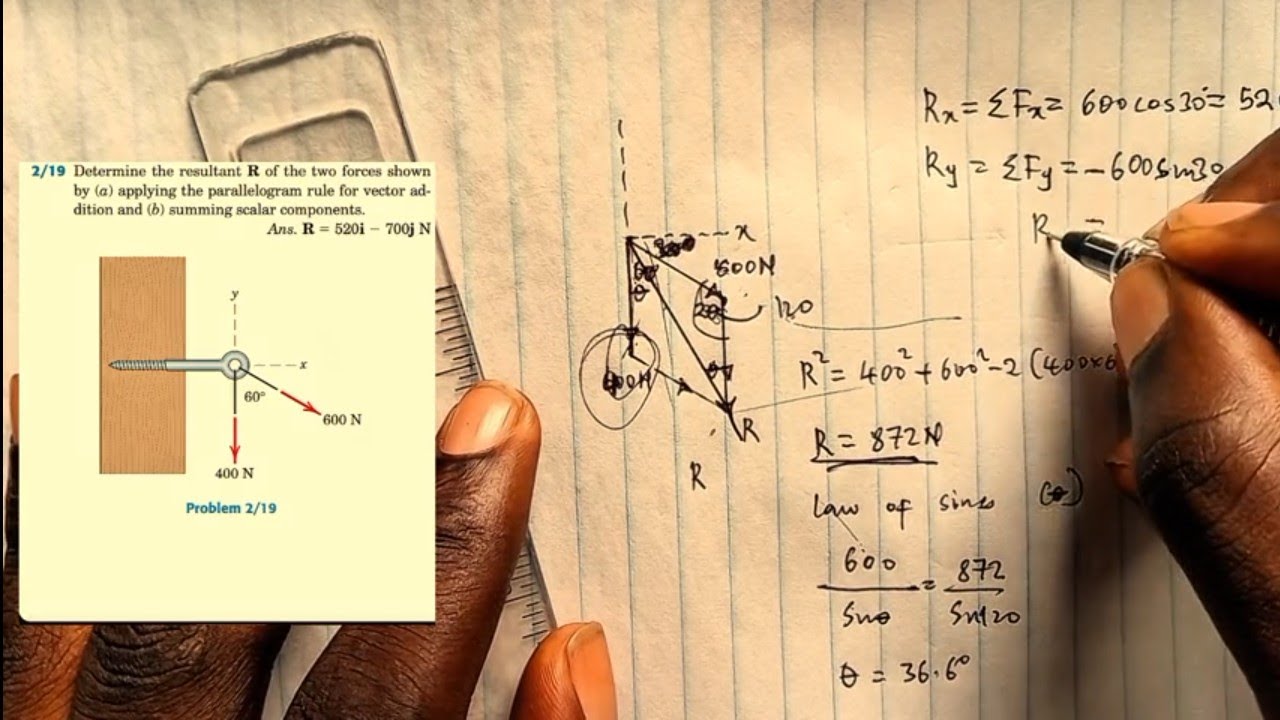 2/19 Determine the resultant R of the two forces shown
by (a) applying the parallelogram rule for vector ad-
dition and (b) summing scalar components.
Ans. R = 520i − 700j N
y
x
60°
600 N
400 N
Problem 2/19
x
θ
120
R
R
Rx = ΣFx = 600cos30° = 52
Ry = ΣFy = -600sin30
R =
R² = 400² + 600² - 2 (400×6
R = 872N
Law of sines (θ)
600/Sinθ = 872/Sin120
θ = 36.6°